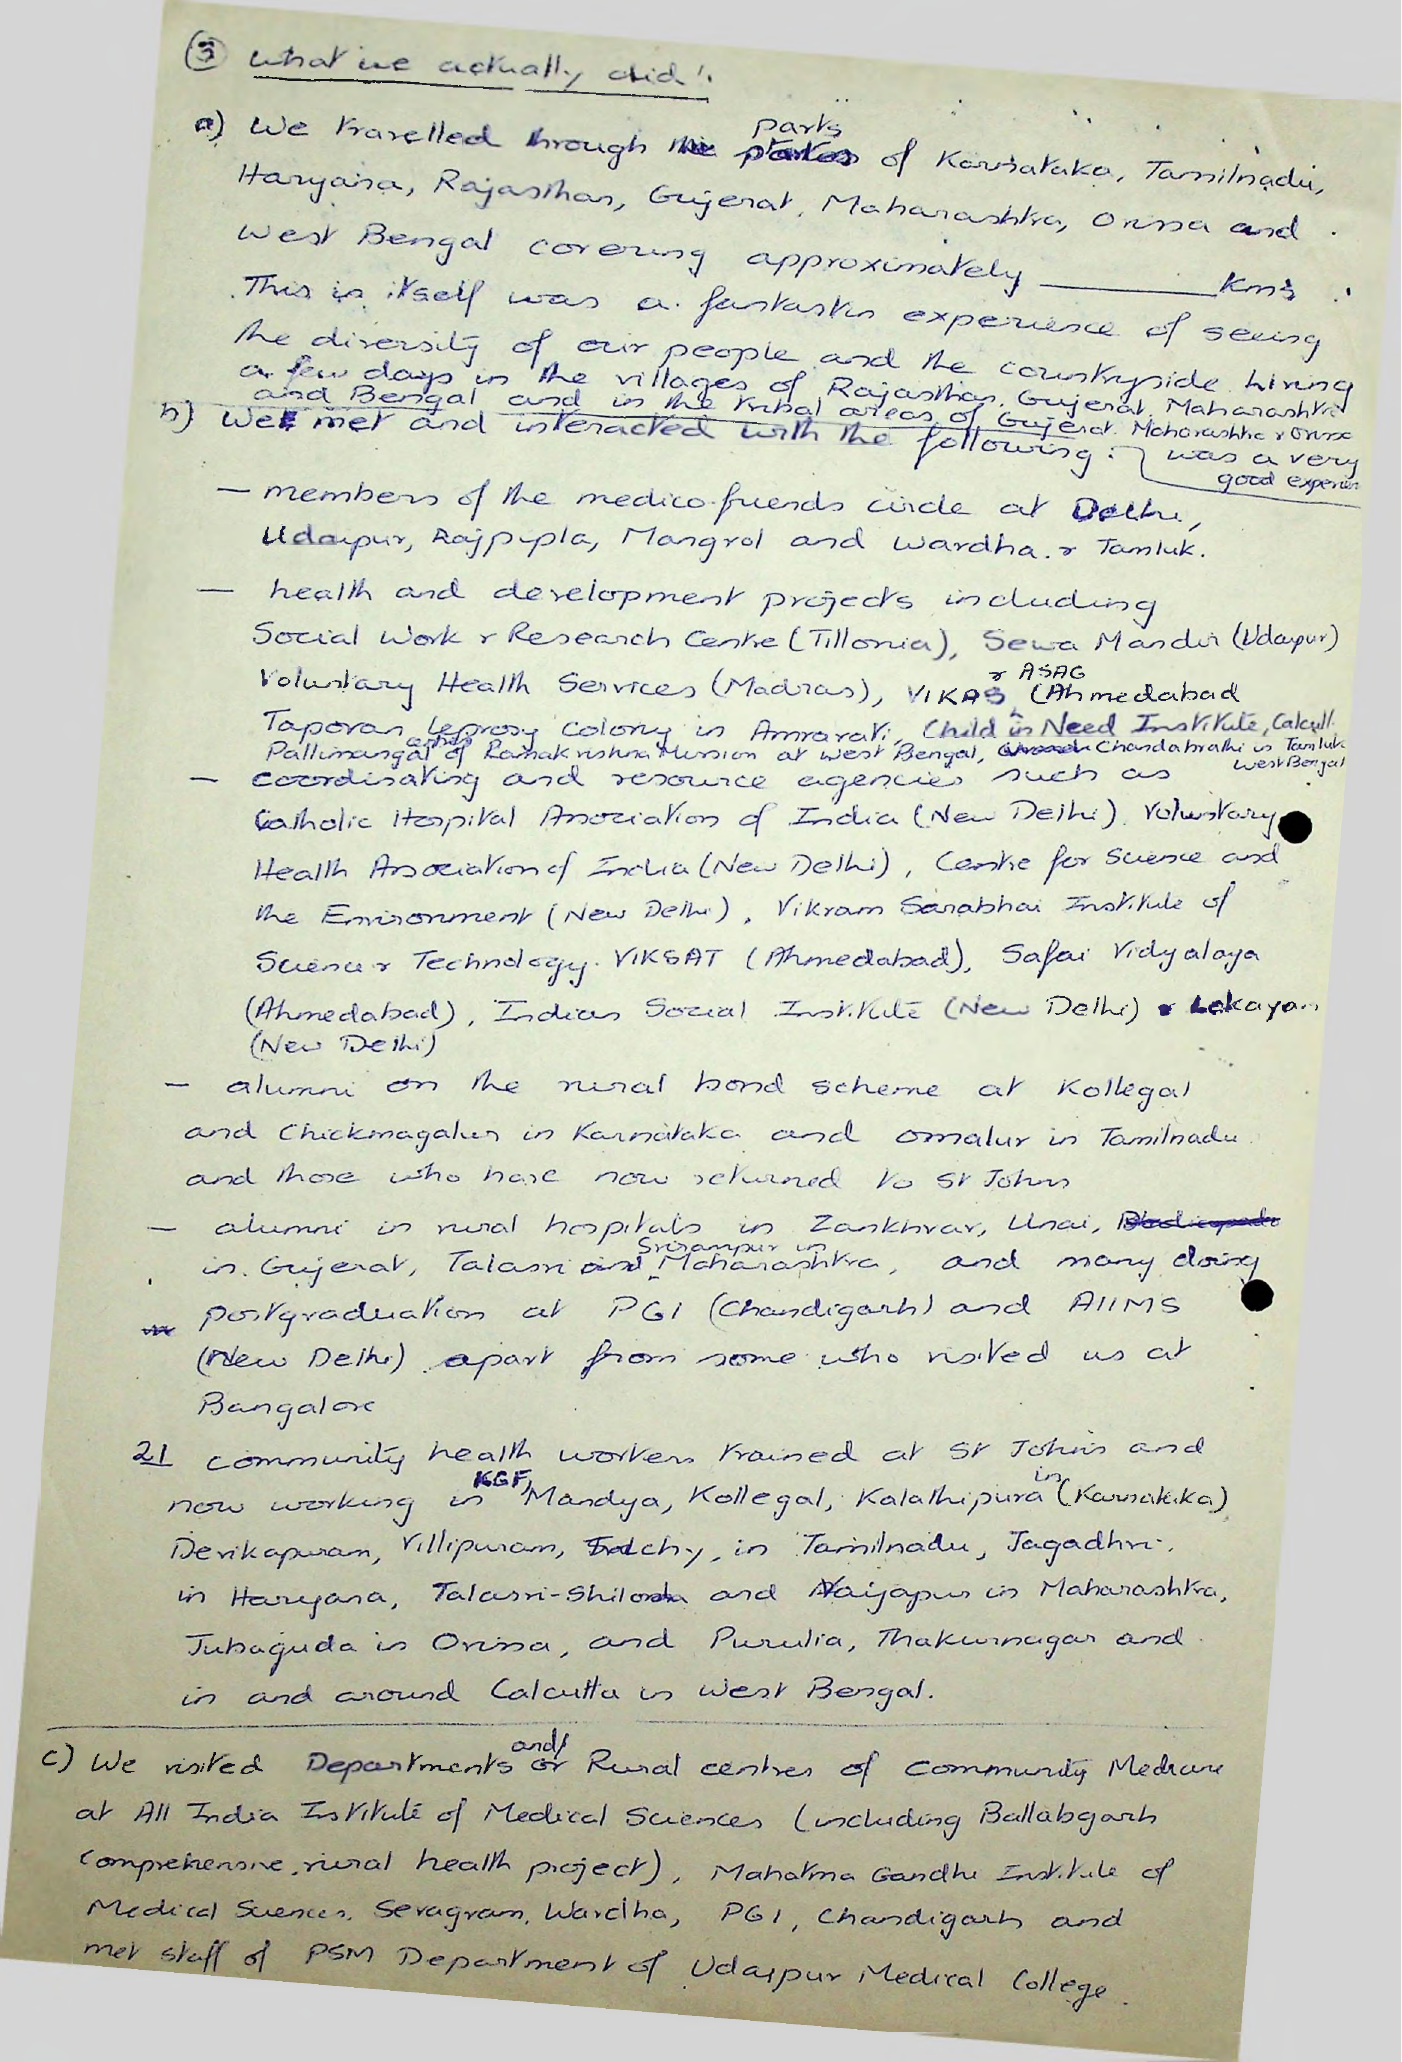 ③ What we actually did!
a) We travelled through the parts of Karnataka, Tamilnadu,
Haryana, Rajasthan, Gujerat, Maharashtra, Orissa and
West Bengal covering approximately ________ Kms
This in itself was a fantastic experience of seeing
the diversity of our people and the countryside. Living
a few days in the villages of Rajasthan, Gujerat, Maharashtra
and Bengal and in the tribal areas of Gujerat, Maharashtra & Orissa
was a very
good experien
b) We met and interacted with the following:
— members of the medico-friends circle at Delhi,
Udaipur, Rajpipla, Mangrol and Wardha. & Tamluk.
— health and development projects including
Social Work & Research Centre (Tillonia), Sewa Mandir (Udaipur)
Voluntary Health Services (Madras), VIKAS & ASAG (Ahmedabad
Taporan leprosy colony in Amravati, Child in Need Institute, Calcutt
Pallimangal of Ramakrishna Mission at West Bengal, Chandabrathi in Tamluk
West Bengal
— coordinating and resource agencies such as
Catholic Hospital Association of India (New Delhi). Voluntary
Health Association of India (New Delhi), Centre for Science and
the Environment (New Delhi), Vikram Sarabhai Institute of
Science & Technology. VIKSAT (Ahmedabad), Safai Vidyalaya
(Ahmedabad), Indian Social Institute (New Delhi) & Lokayan
(New Delhi)
— alumni on the rural bond scheme at Kollegal
and Chickmagalur in Karnataka and Omalur in Tamilnadu
and those who have now returned to St Johns
— alumni in rural hospitals in Zankhvav, Unai,
in Gujerat, Talasri and Srirampur in Maharashtra, and many doing
postgraduation at PGI (Chandigarh) and AIIMS
(New Delhi) apart from some who visited us at
Bangalore
21 community health workers trained at St John's and
now working in KGF, Mandya, Kollegal, Kalathipura in (Karnataka)
Devikapuram, Villipuram, Trichy, in Tamilnadu, Jagadhri
in Haryana, Talasri-Shilonda and Vaijapur in Maharashtra,
Jubaguda in Orissa, and Purulia, Thakurnagar and
in and around Calcutta in West Bengal.
c) We visited Departments and/or Rural centres of Community Medicine
at All India Institute of Medical Sciences (including Ballabgarh
Comprehensive rural health project), Mahatma Gandhi Institute of
Medical Sciences, Sevagram, Wardha, PGI, Chandigarh and
met staff of PSM Department of Udaipur Medical College.